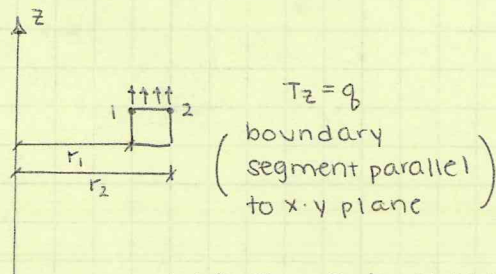 z
1 2
T_z = q
r₁
r₂
( boundary
segment parallel
to x-y plane )